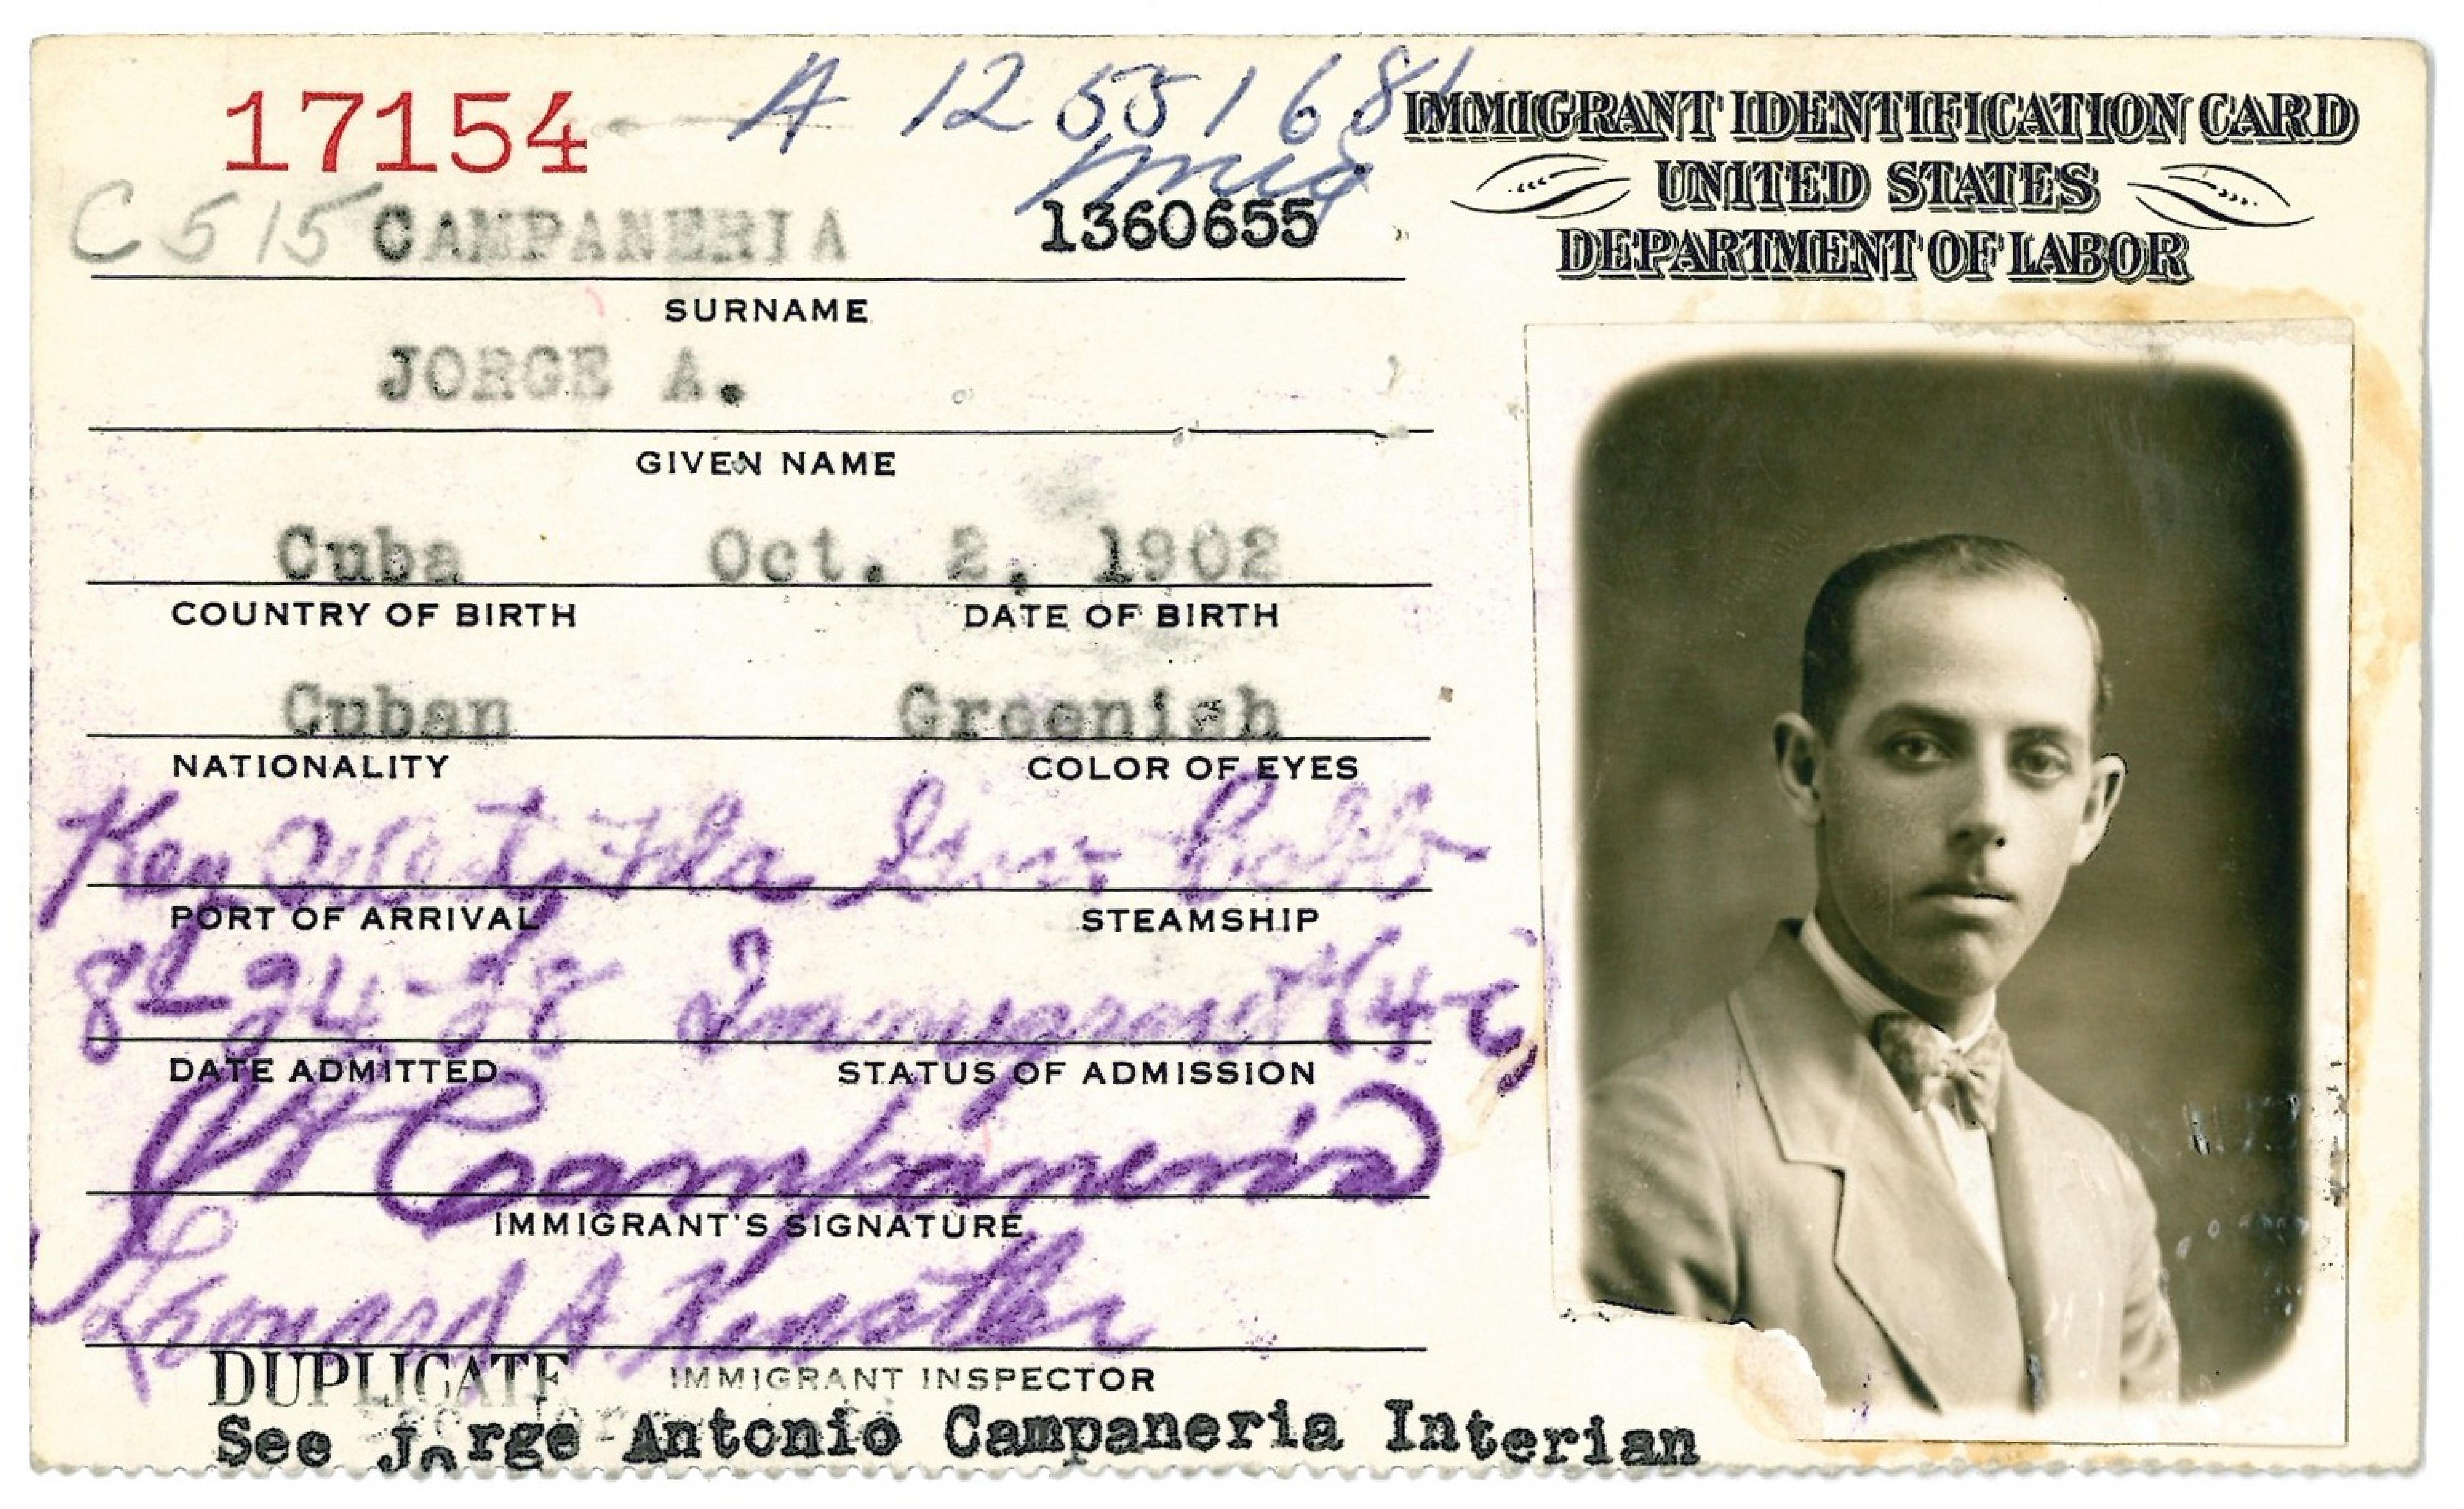 17154 A 12 551 681
IMMIGRANT IDENTIFICATION CARD
UNITED STATES
DEPARTMENT OF LABOR
C 515 CAMPANERIA 1360655
SURNAME
JORGE A.
GIVEN NAME
Cuba Oct. 2, 1902
COUNTRY OF BIRTH DATE OF BIRTH
Cuban Greenish
NATIONALITY COLOR OF EYES
Key West, Fla Gov. Cobb
PORT OF ARRIVAL STEAMSHIP
24-28 Immigrant (4-c)
DATE ADMITTED STATUS OF ADMISSION
JA Campaneria
IMMIGRANT'S SIGNATURE
Leonard A.
DUPLICATE IMMIGRANT INSPECTOR
See Jorge Antonio Campaneria Interian